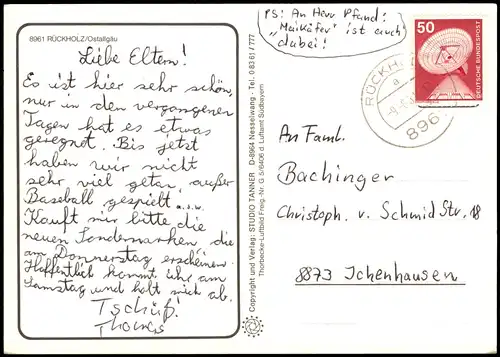 8961 RÜCKHOLZ/Ostallgäu
Liebe Eltern!
Es ist hier sehr schön,
nur in den vergangenen
Tagen hat es etwas
geregnet. Bis jetzt
haben wir nicht
sehr viel getan, außer
Baseball gespielt u.s.w.
Kauft mir bitte die
neuen Sondermarken, die
am Donnerstag erscheinen.
Hoffentlich kommt ihr am
Samstag und holt mich ab.
Tschüß!
Thomas
Copyright und Verlag: STUDIO TANNER · D-8964 Nesselwang · Tel. 0 83 61 / 777
Thorbecke-Luftbild Freig.-Nr. G 5/6406 d. Luftamt Südbayern
PS: An Herr Pfand:
„Maikäfer" ist auch
dabei!
50
DEUTSCHE BUNDESPOST
RÜCKH
a
896
An Faml.
Bachinger
Christoph. v. Schmid Str. 18
8873 Ichenhausen